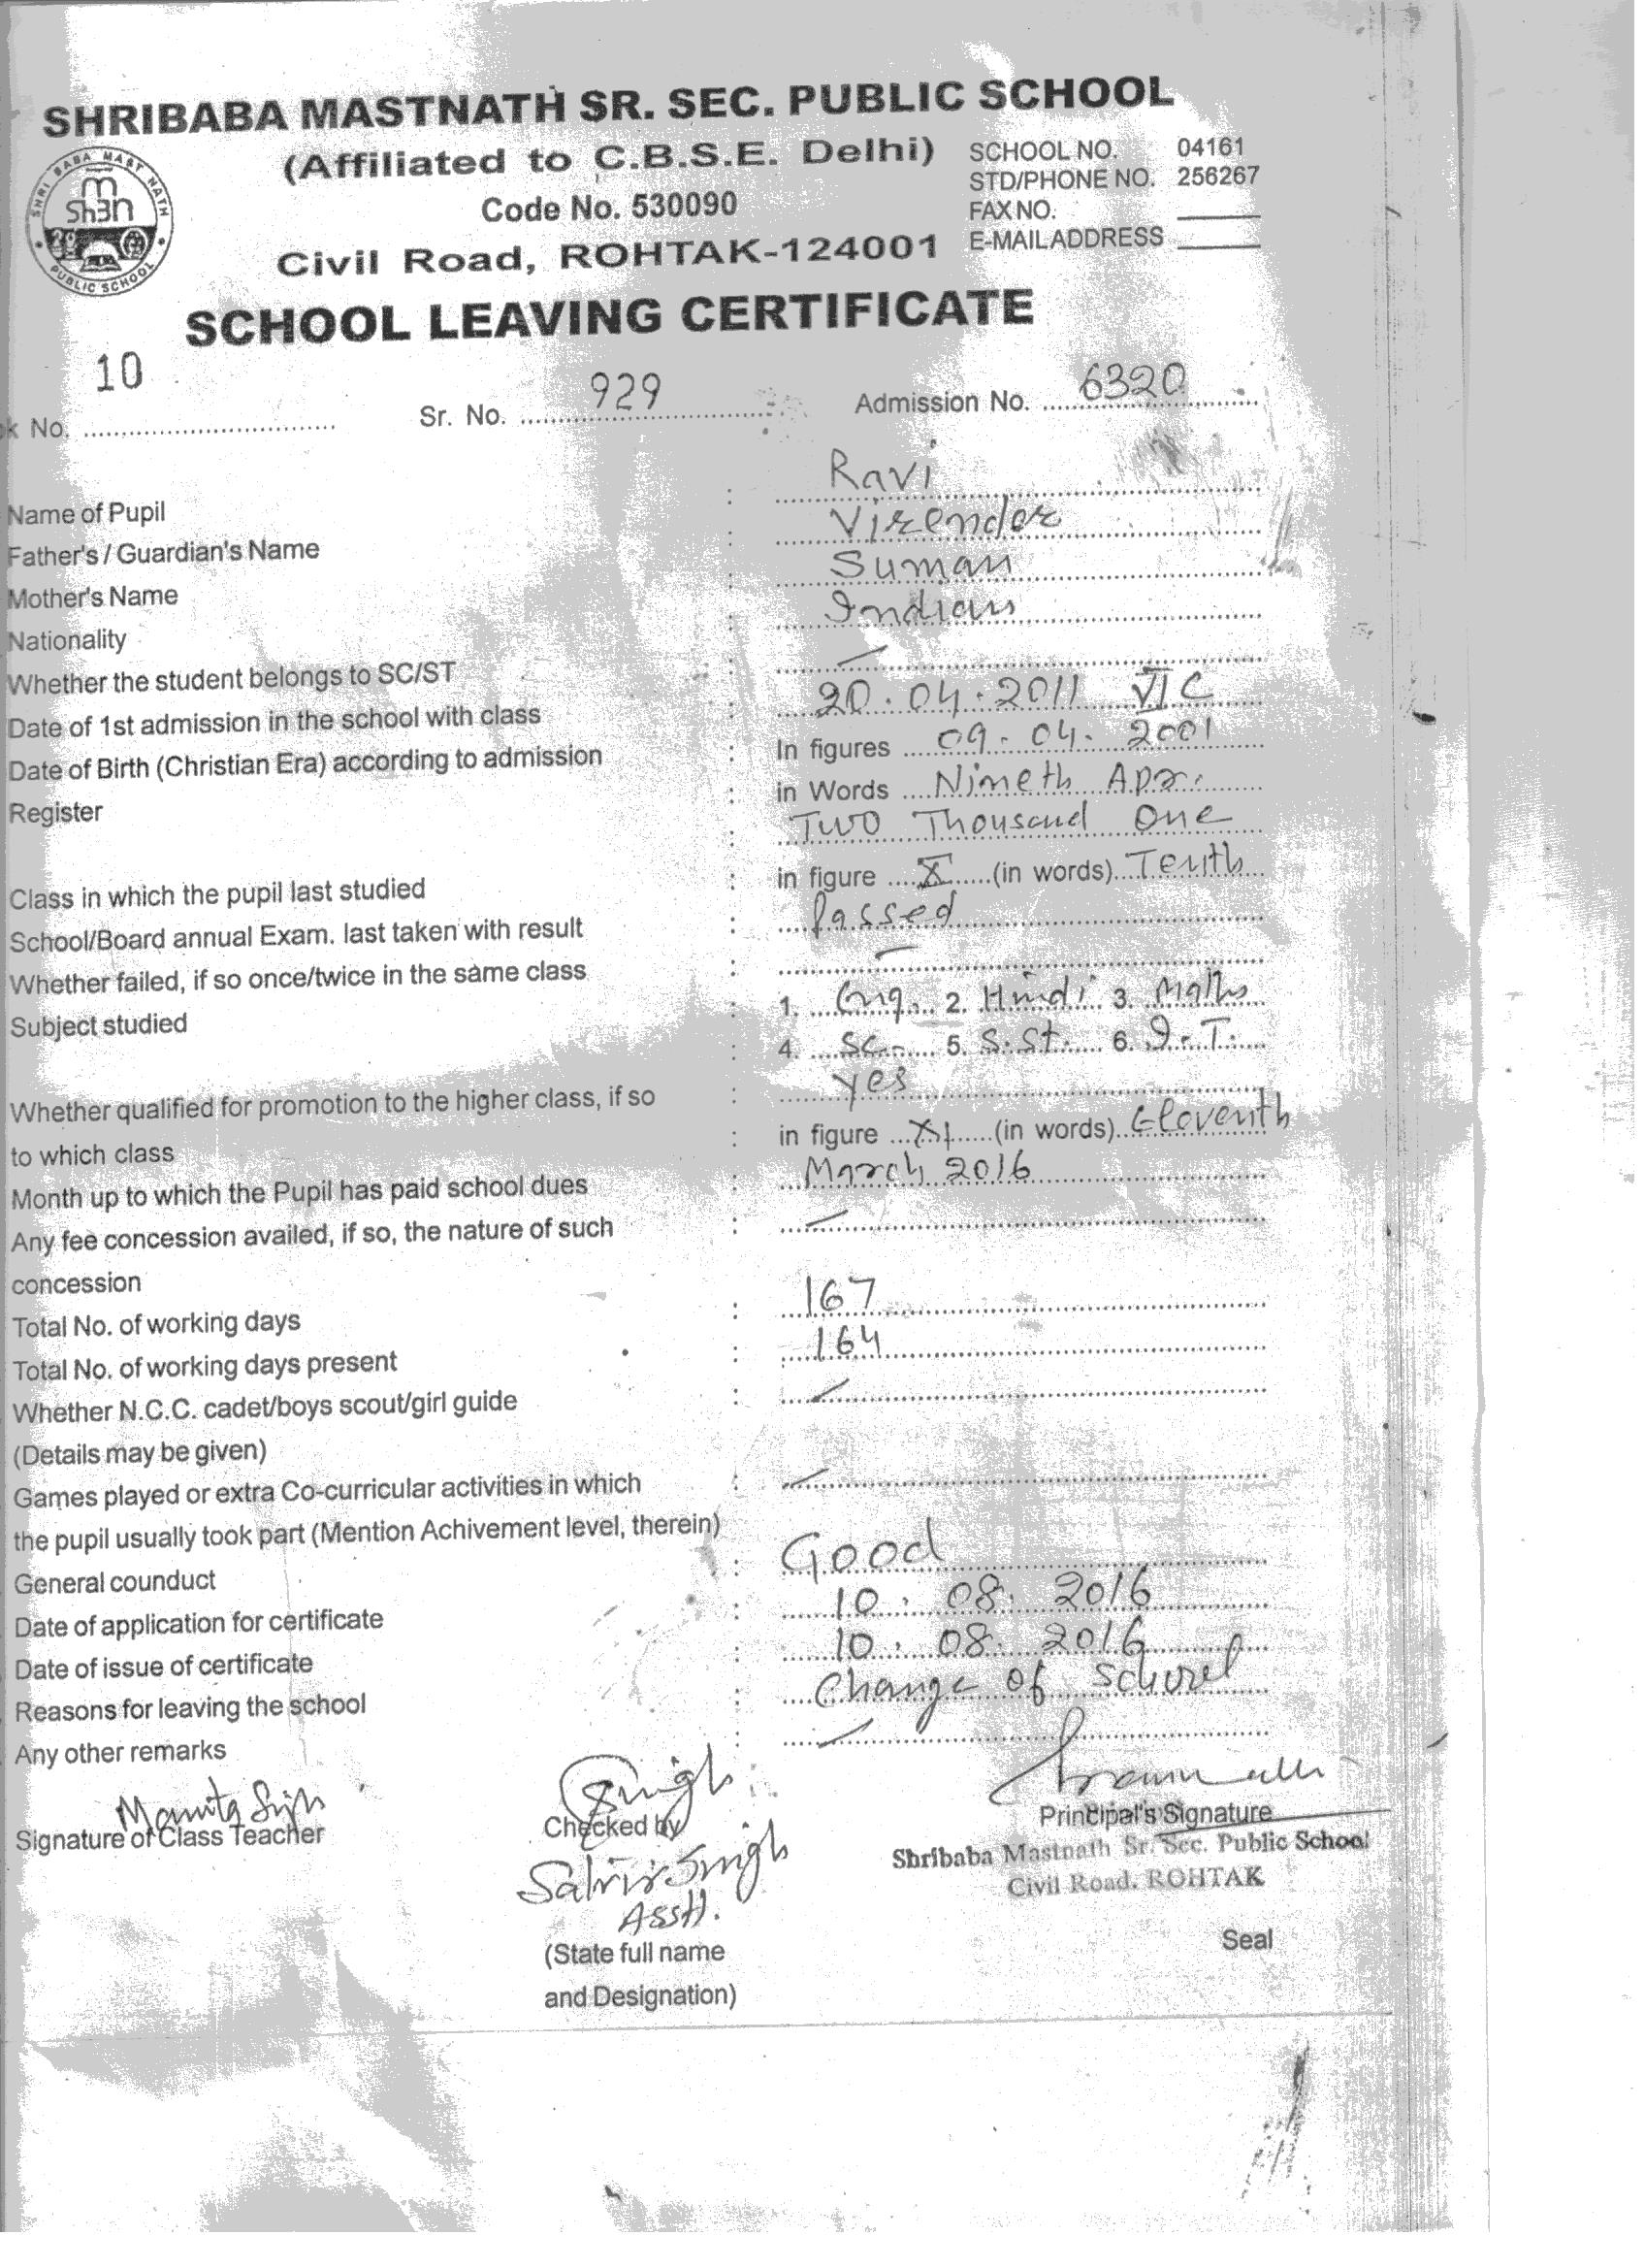 SHRIBABA MASTNATH SR. SEC. PUBLIC SCHOOL
(Affiliated to C.B.S.E. Delhi)
Code No. 530090
Civil Road, ROHTAK-124001
SCHOOL NO. 04161
STD/PHONE NO. 256267
FAX NO.
E-MAIL ADDRESS
SHRI BABA MAST NATH
PUBLIC SCHOOL
SCHOOL LEAVING CERTIFICATE
k No. 10 Sr. No. 929 Admission No. 6320
Name of Pupil : Ravi
Father's / Guardian's Name : Virender
Mother's Name : Suman
Nationality : Indian
Whether the student belongs to SC/ST : —
Date of 1st admission in the school with class : 20.04.2011 VI C
Date of Birth (Christian Era) according to admission : In figures 09.04.2001
Register : in Words Nineth Apr.
: Two Thousand One
Class in which the pupil last studied : in figure X (in words) Tenth
School/Board annual Exam. last taken with result : Passed
Whether failed, if so once/twice in the same class : —
Subject studied : 1. Eng. 2. Hindi 3. Maths
: 4. Sc. 5. S.St. 6. I.T.
Whether qualified for promotion to the higher class, if so : yes
to which class : in figure XI (in words) Eleventh
Month up to which the Pupil has paid school dues : March 2016
Any fee concession availed, if so, the nature of such : —
concession
Total No. of working days : 167
Total No. of working days present : 164
Whether N.C.C. cadet/boys scout/girl guide : —
(Details may be given)
Games played or extra Co-curricular activities in which : —
the pupil usually took part (Mention Achivement level, therein)
General counduct : Good
Date of application for certificate : 10.08.2016
Date of issue of certificate : 10.08.2016
Reasons for leaving the school : Change of School
Any other remarks : —
Signature of Class Teacher
Singh
Checked by
Singh
Asstt.
(State full name
and Designation)
Principal's Signature
Shribaba Mastnath Sr. Sec. Public School
Civil Road, ROHTAK
Seal